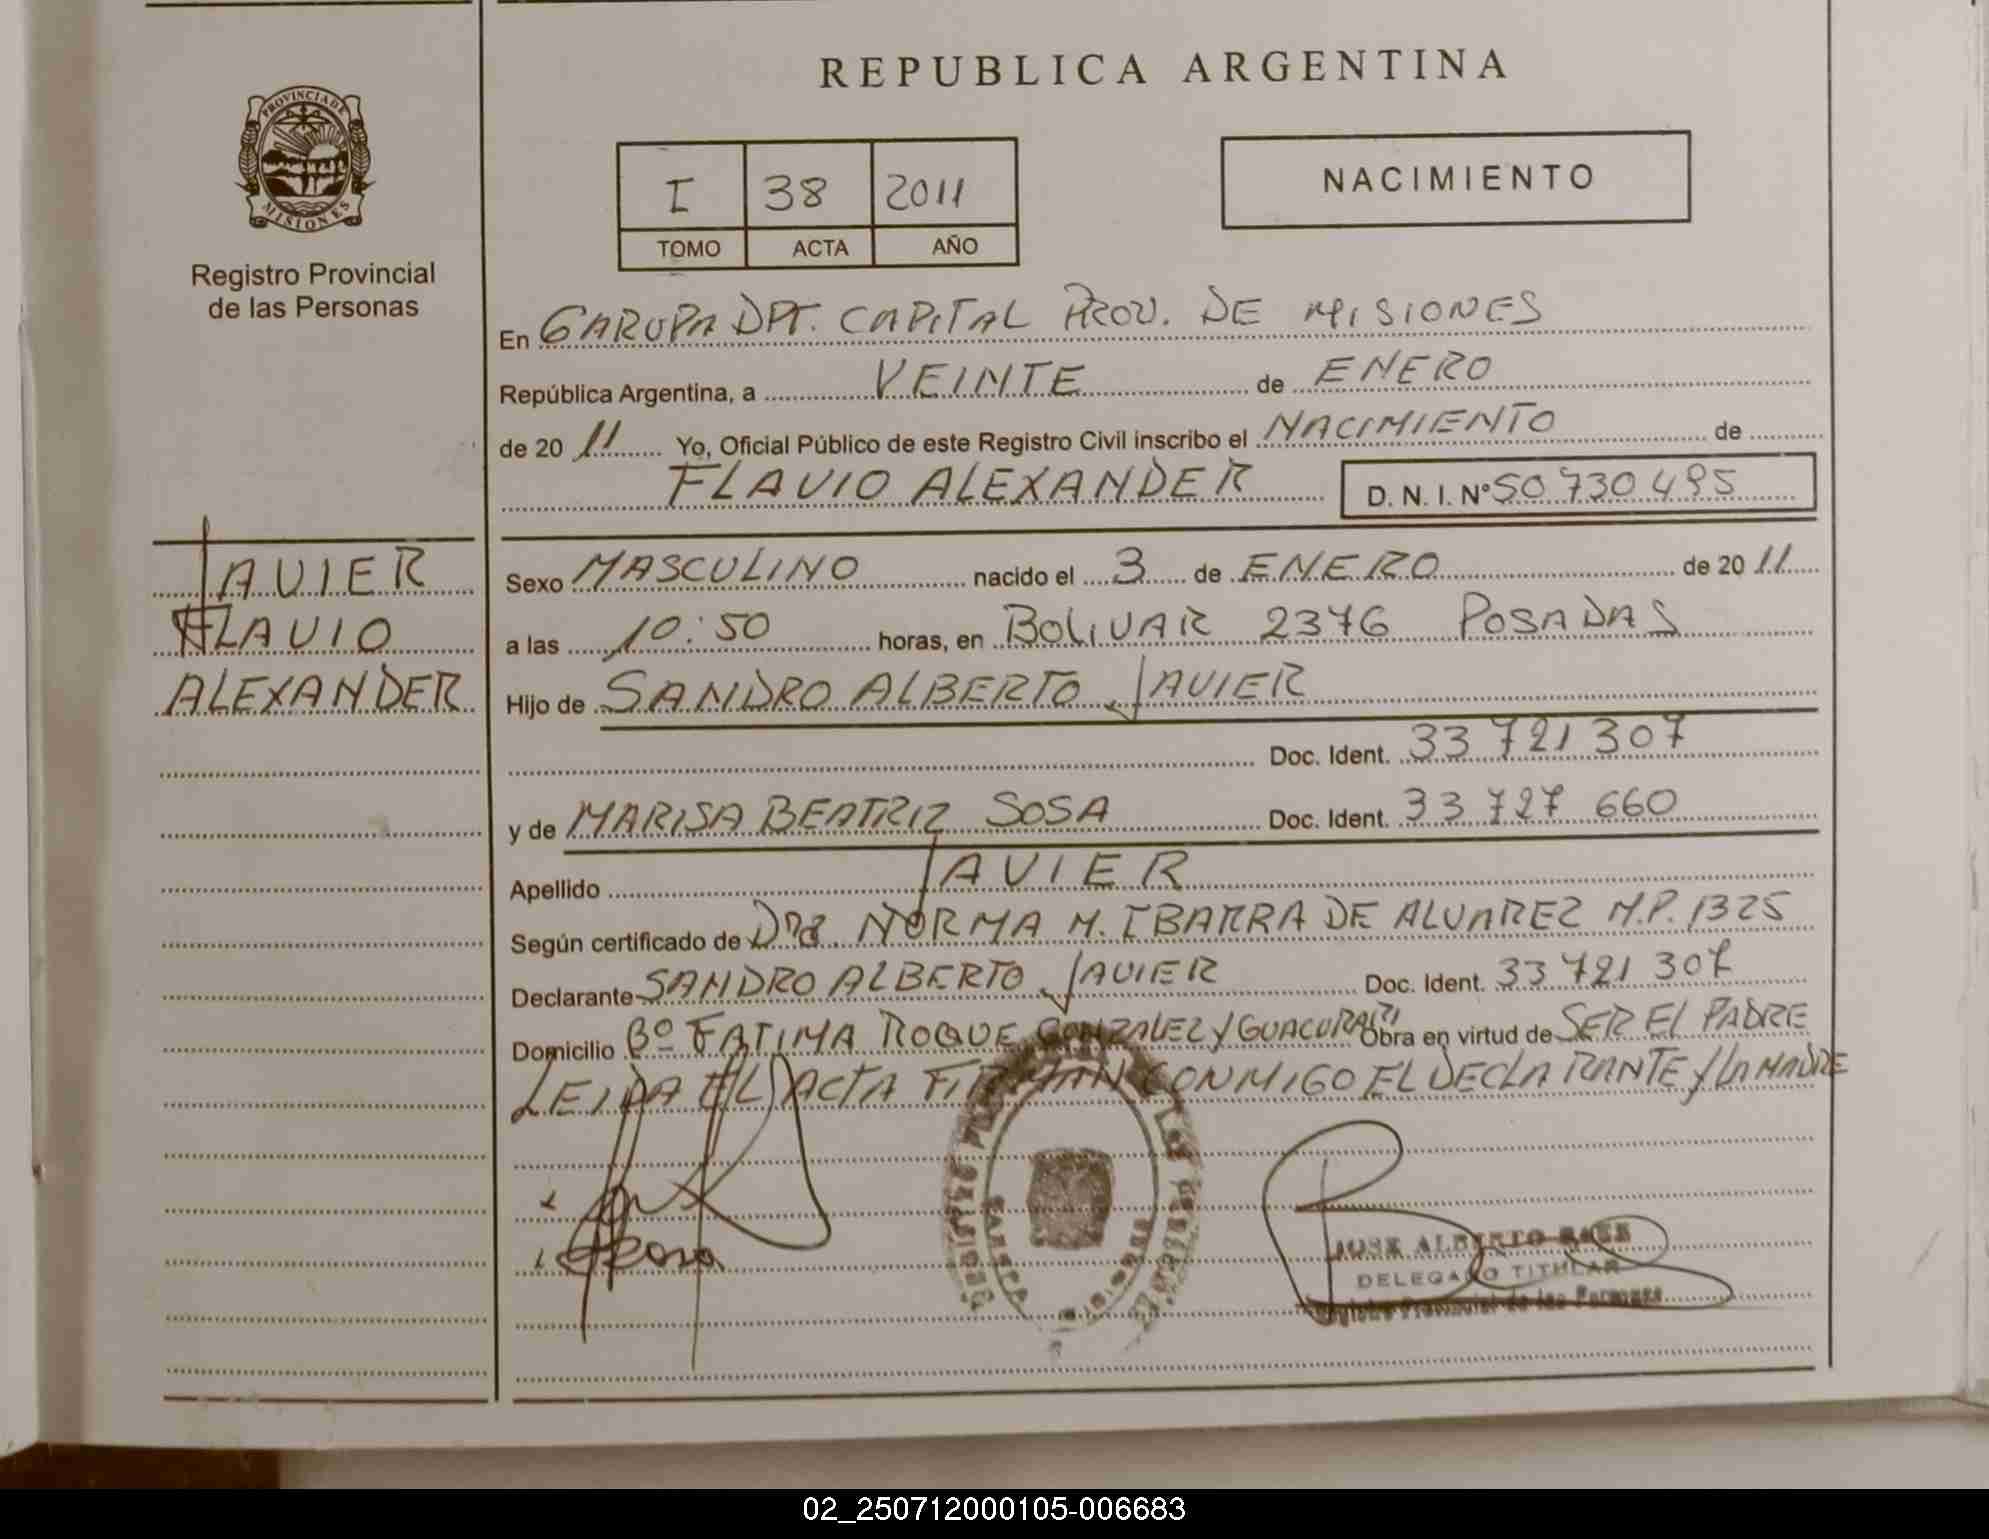 REPUBLICA ARGENTINA
PROVINCIA DE MISIONES
Registro Provincial
de las Personas
I 38 2011
TOMO ACTA AÑO
NACIMIENTO
En GARUPA DPT. CAPITAL PROV. DE MISIONES
República Argentina, a VEINTE de ENERO
de 20 11 Yo, Oficial Público de este Registro Civil inscribo el NACIMIENTO de
FLAVIO ALEXANDER D. N. I. N° 50 730 495
JAVIER
FLAVIO
ALEXANDER
Sexo MASCULINO nacido el 3 de ENERO de 20 11
a las 10:50 horas, en BOLIVAR 2376 POSADAS
Hijo de SANDRO ALBERTO JAVIER
Doc. Ident. 33 721 307
y de MARISA BEATRIZ SOSA Doc. Ident. 33 727 660
Apellido JAVIER
Según certificado de Dra. NORMA M. IBARRA DE ALVAREZ M.P. 1325
Declarante SANDRO ALBERTO JAVIER Doc. Ident. 33 721 307
Domicilio Bº FATIMA ROQUE GONZALEZ Y GUACURARI Obra en virtud de SER EL PADRE
LEIDA EL ACTA FIRMAN CONMIGO EL DECLARANTE Y LA MADRE
JOSE ALBERTO
DELEGADO TITULAR
Registro Provincial de las Personas
02_250712000105-006683